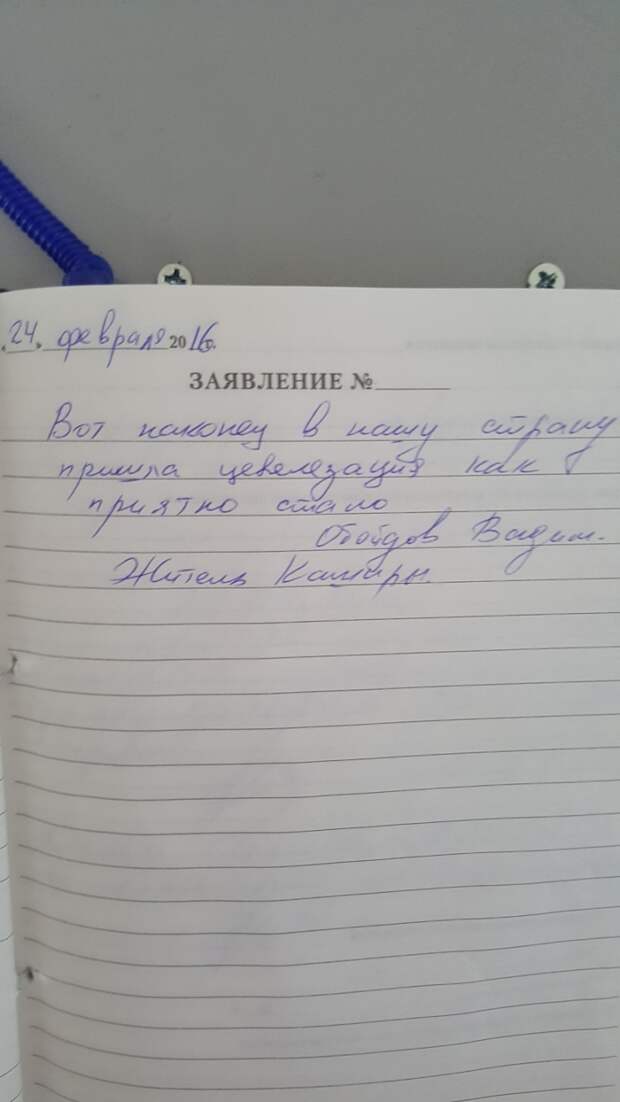 24. февраля 2016г.
ЗАЯВЛЕНИЕ №
Вот наконец в нашу страну
пришла цевелезация как
приятно стало
Вадим.
Житель Каширы.